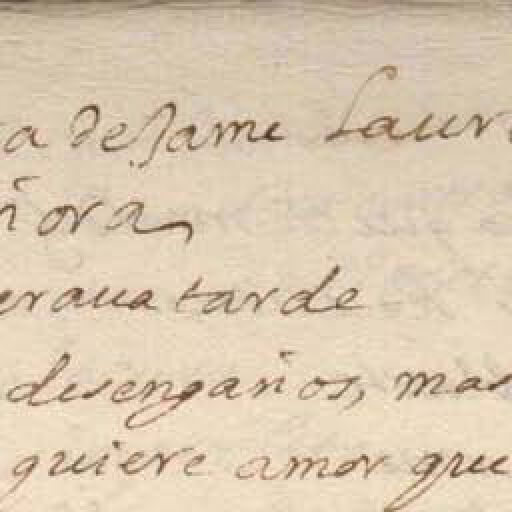 a deJame Laur
ñora
eraua tarde
desengaños, mas
quiere amor que